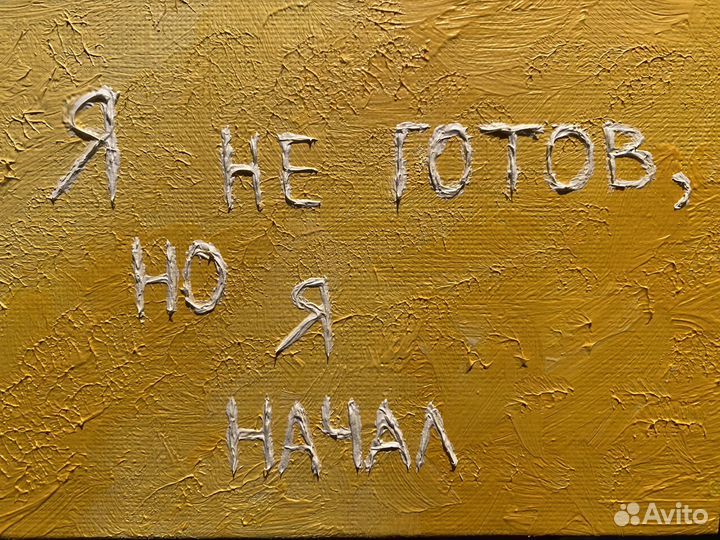 Я НЕ ГОТОВ,
НО Я
НАЧАЛ
Avito